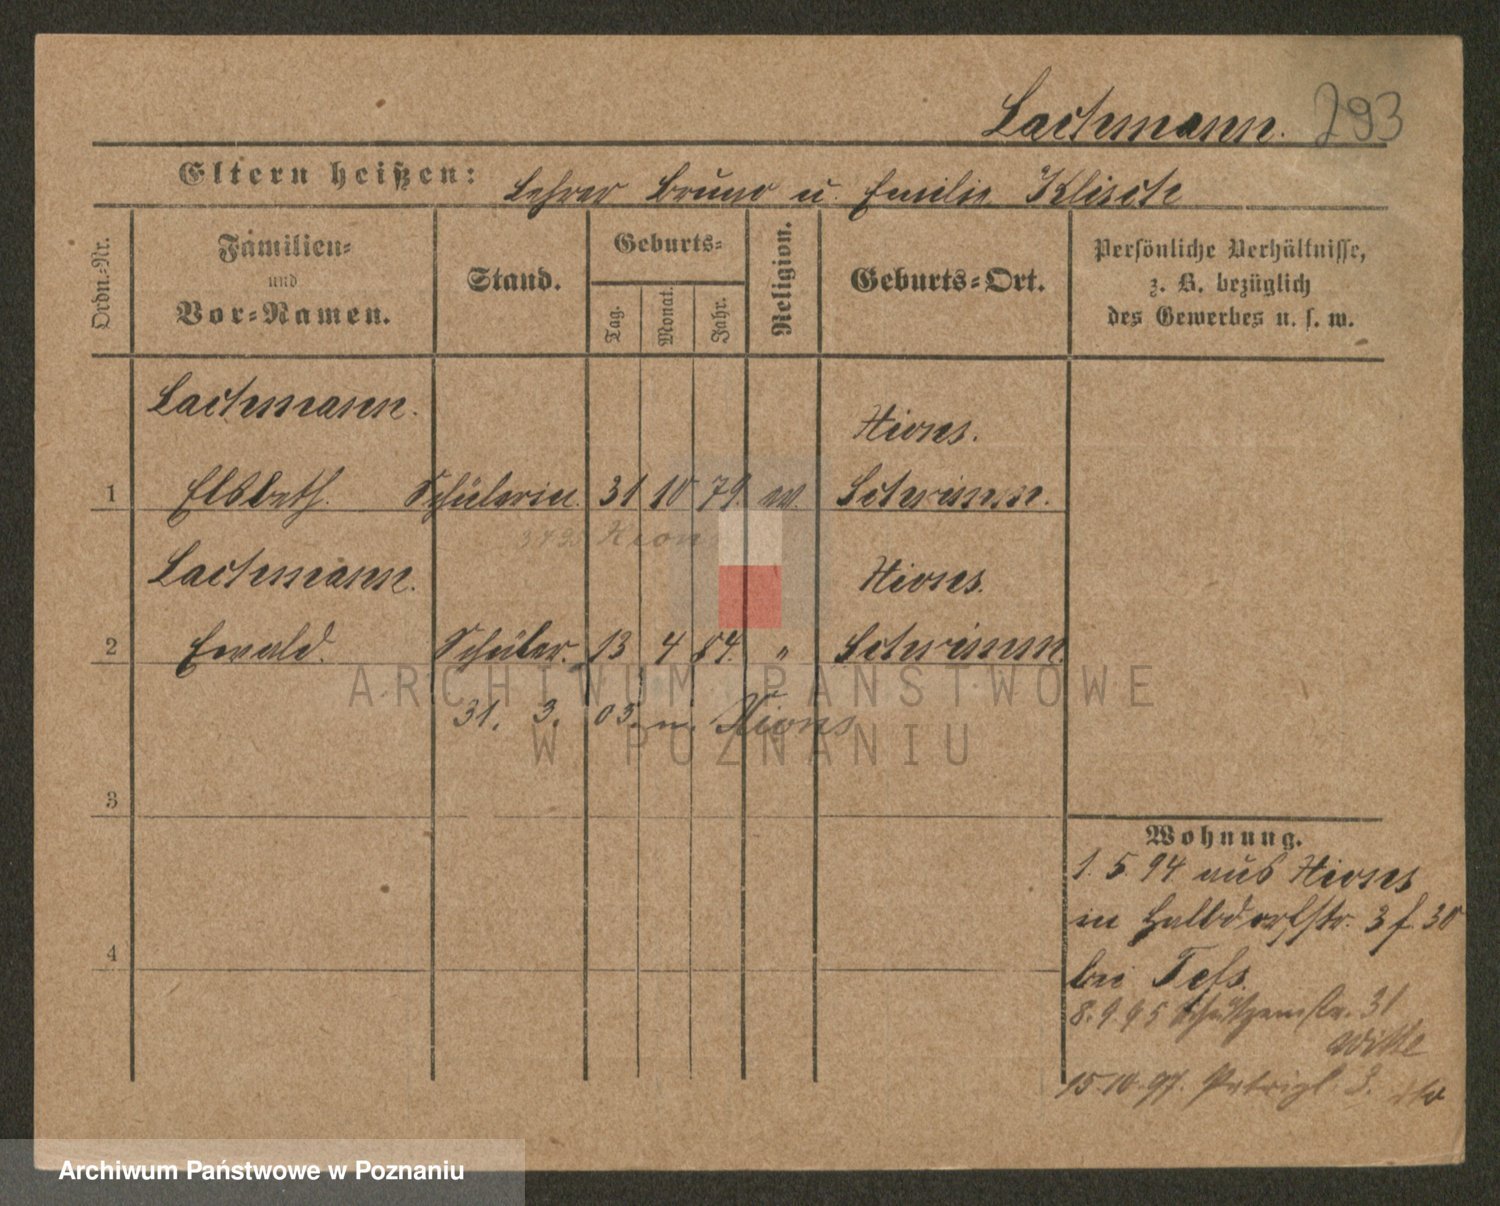 Lachmann. 293
Eltern heißen: Lehrer Bruno u. Emilie Klischt
Ordn.-Nr.
Familien-
und
Vor-Namen.
Stand.
Geburts-
Tag.
Monat.
Jahr.
Religion.
Geburts-Ort.
Persönliche Verhältnisse,
z. B. bezüglich
des Gewerbes u. s. w.
Lachmann.
Xions.
1 Elsbeth. Schülerin. 31 10 79.
Schrimm.
Xions
Lachmann.
Xions.
2 Ewald. Schüler. 13 4 84. "
Schrimm.
31. 3. 03. n. Xions
3
4
Wohnung.
1. 5. 94 aus Xions
in Halbdorfstr. 3 f. 30
bei
8. 9. 95 Schützenstr. 31
Witte
15.10.97. Petripl. 3. dto
ARCHIWUM PAŃSTWOWE
W POZNANIU
Archiwum Państwowe w Poznaniu